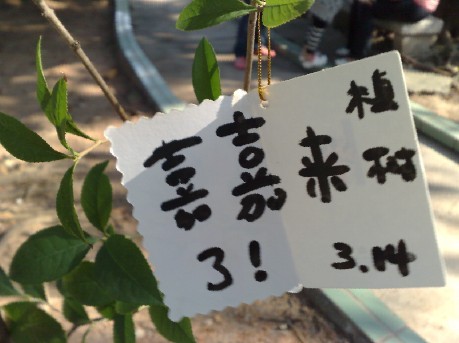 嘉嘉来植树
了! 3.14